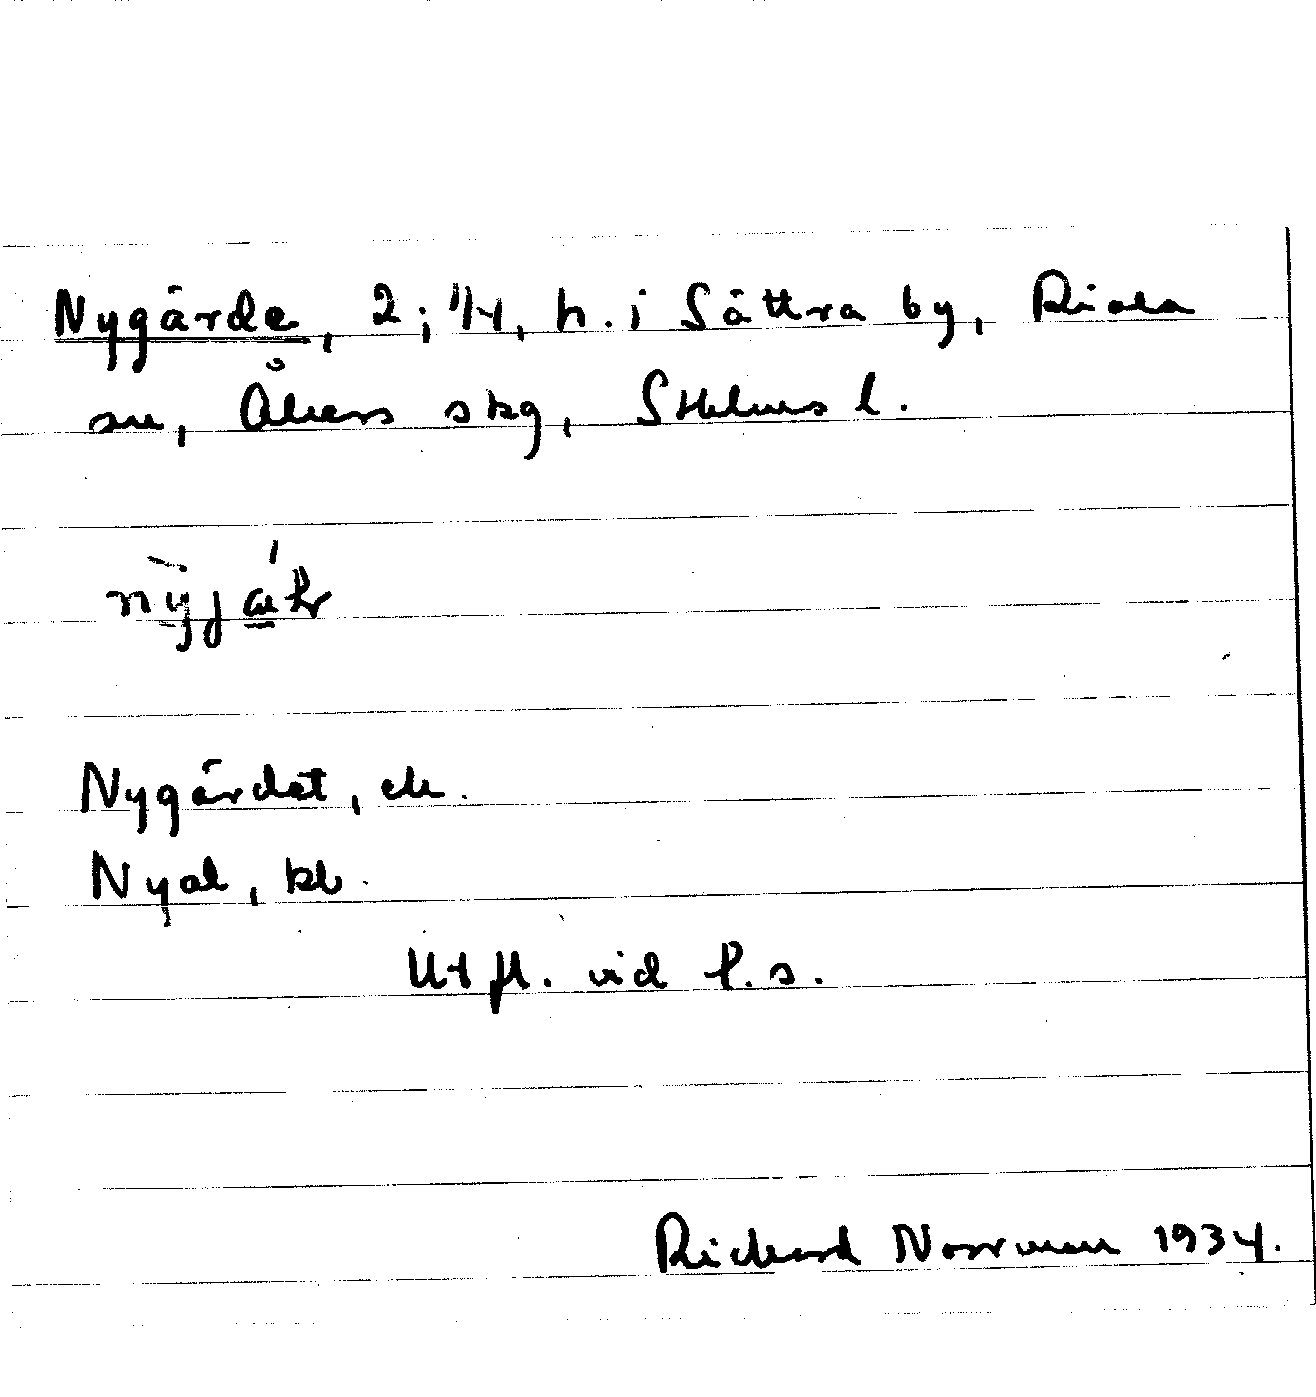 Nygärde, 2; 1/4, h. i Sättra by, Riala
sn, Åkers skg, Sthlms l.
Nygärdet, ek.
Nyal, kb.
Utfl. vid f.s.
Richard Norrman 1934.